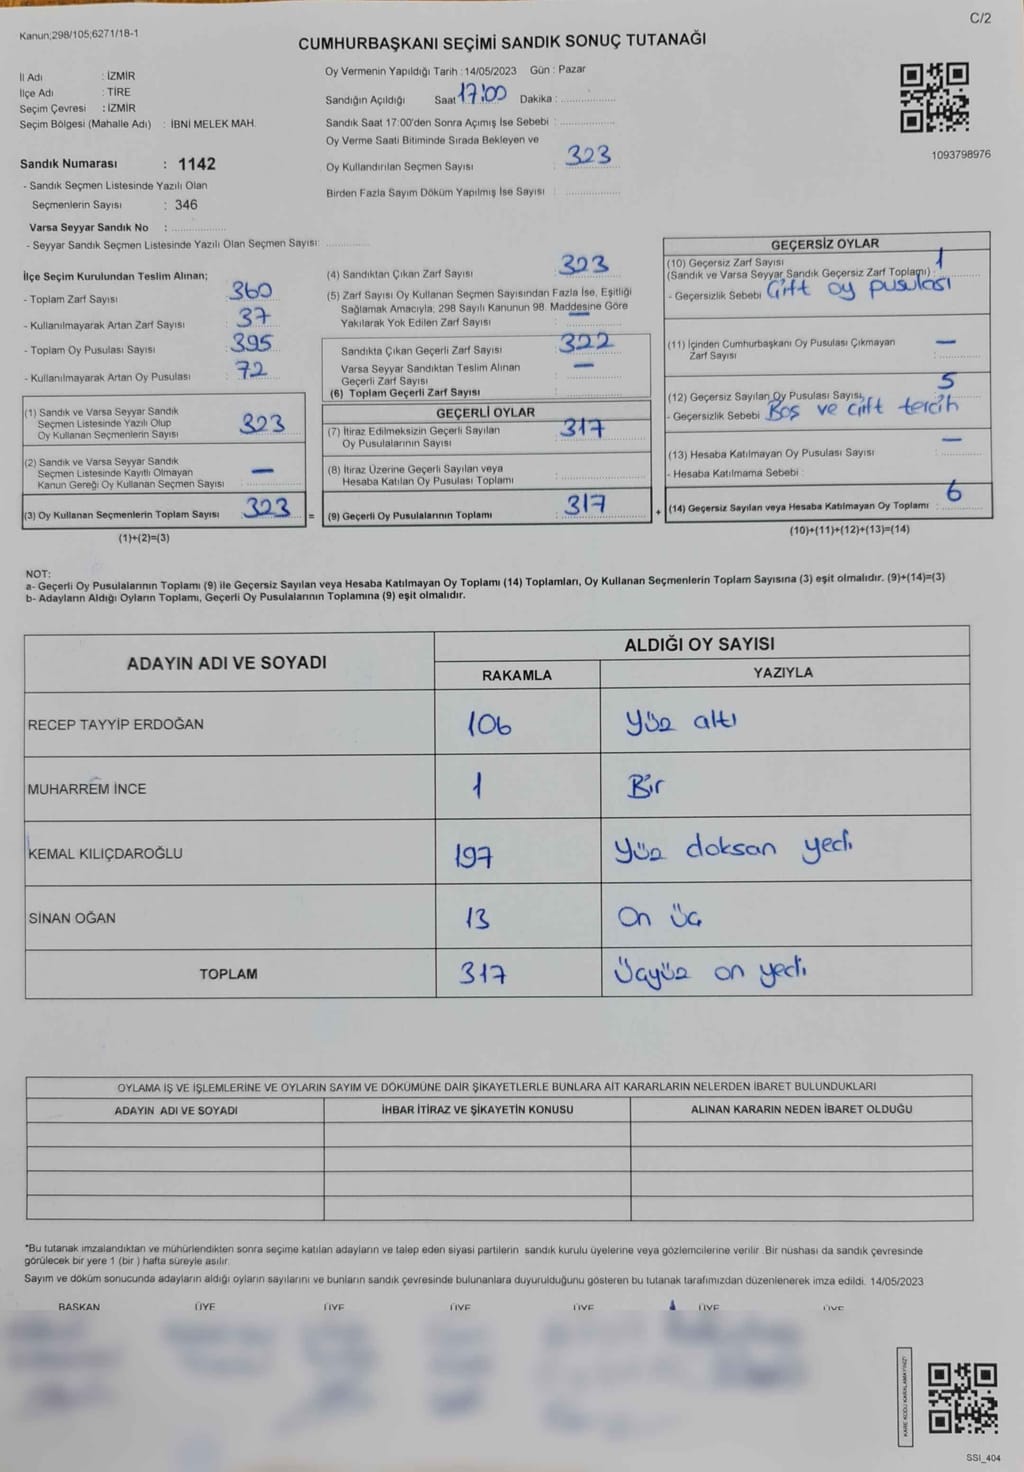 C/2
Kanun;298/105;6271/18-1
CUMHURBAŞKANI SEÇİMİ SANDIK SONUÇ TUTANAĞI
İl Adı : İZMİR
İlçe Adı : TİRE
Seçim Çevresi : İZMİR
Seçim Bölgesi (Mahalle Adı) : İBNİ MELEK MAH.
Sandık Numarası : 1142
- Sandık Seçmen Listesinde Yazılı Olan
Seçmenlerin Sayısı : 346
Varsa Seyyar Sandık No : ..................
- Seyyar Sandık Seçmen Listesinde Yazılı Olan Seçmen Sayısı: ..............
Oy Vermenin Yapıldığı Tarih : 14/05/2023 Gün : Pazar
Sandığın Açıldığı Saat 17:00 Dakika : ................
Sandık Saat 17:00'den Sonra Açımış İse Sebebi : ................
Oy Verme Saati Bitiminde Sırada Bekleyen ve
Oy Kullandırılan Seçmen Sayısı : 323
Birden Fazla Sayım Döküm Yapılmış İse Sayısı : ................
1093798976
İlçe Seçim Kurulundan Teslim Alınan;
- Toplam Zarf Sayısı : 360
- Kullanılmayarak Artan Zarf Sayısı : 37
- Toplam Oy Pusulası Sayısı : 395
- Kullanılmayarak Artan Oy Pusulası : 72
(1) Sandık ve Varsa Seyyar Sandık
Seçmen Listesinde Yazılı Olup
Oy Kullanan Seçmenlerin Sayısı : 323
(2) Sandık ve Varsa Seyyar Sandık
Seçmen Listesinde Kayıtlı Olmayan
Kanun Gereği Oy Kullanan Seçmen Sayısı : —
(3) Oy Kullanan Seçmenlerin Toplam Sayısı : 323 =
(1)+(2)=(3)
(4) Sandıktan Çıkan Zarf Sayısı : 323
(5) Zarf Sayısı Oy Kullanan Seçmen Sayısından Fazla İse, Eşitliği
Sağlamak Amacıyla; 298 Sayılı Kanunun 98. Maddesine Göre
Yakılarak Yok Edilen Zarf Sayısı : —
Sandıkta Çıkan Geçerli Zarf Sayısı : 322
Varsa Seyyar Sandıktan Teslim Alınan
Geçerli Zarf Sayısı : —
(6) Toplam Geçerli Zarf Sayısı :
GEÇERLİ OYLAR
(7) İtiraz Edilmeksizin Geçerli Sayılan
Oy Pusulalarının Sayısı : 317
(8) İtiraz Üzerine Geçerli Sayılan veya
Hesaba Katılan Oy Pusulası Toplamı :
(9) Geçerli Oy Pusulalarının Toplamı : 317 +
GEÇERSİZ OYLAR
(10) Geçersiz Zarf Sayısı
(Sandık ve Varsa Seyyar Sandık Geçersiz Zarf Toplamı) : 1
- Geçersizlik Sebebi : Çift oy pusulası
(11) İçinden Cumhurbaşkanı Oy Pusulası Çıkmayan
Zarf Sayısı : —
(12) Geçersiz Sayılan Oy Pusulası Sayısı : 5
- Geçersizlik Sebebi : Boş ve çift tercih
(13) Hesaba Katılmayan Oy Pusulası Sayısı : —
- Hesaba Katılmama Sebebi :
(14) Geçersiz Sayılan veya Hesaba Katılmayan Oy Toplamı : 6
(10)+(11)+(12)+(13)=(14)
NOT:
a- Geçerli Oy Pusulalarının Toplamı (9) ile Geçersiz Sayılan veya Hesaba Katılmayan Oy Toplamı (14) Toplamları, Oy Kullanan Seçmenlerin Toplam Sayısına (3) eşit olmalıdır. (9)+(14)=(3)
b- Adayların Aldığı Oyların Toplamı, Geçerli Oy Pusulalarının Toplamına (9) eşit olmalıdır.
ADAYIN ADI VE SOYADI ALDIĞI OY SAYISI
RAKAMLA YAZIYLA
RECEP TAYYİP ERDOĞAN 106 Yüz altı
MUHARREM İNCE 1 Bir
KEMAL KILIÇDAROĞLU 197 Yüz doksan yedi
SİNAN OĞAN 13 On üç
TOPLAM 317 Üçyüz on yedi
OYLAMA İŞ VE İŞLEMLERİNE VE OYLARIN SAYIM VE DÖKÜMÜNE DAİR ŞİKAYETLERLE BUNLARA AİT KARARLARIN NELERDEN İBARET BULUNDUKLARI
ADAYIN ADI VE SOYADI İHBAR İTİRAZ VE ŞİKAYETİN KONUSU ALINAN KARARIN NEDEN İBARET OLDUĞU
*Bu tutanak imzalandıktan ve mühürlendikten sonra seçime katılan adayların ve talep eden siyasi partilerin sandık kurulu üyelerine veya gözlemcilerine verilir. Bir nüshası da sandık çevresinde
görülecek bir yere 1 (bir ) hafta süreyle asılır.
Sayım ve döküm sonucunda adayların aldığı oyların sayılarını ve bunların sandık çevresinde bulunanlara duyurulduğunu gösteren bu tutanak tarafımızdan düzenlenerek imza edildi. 14/05/2023
BAŞKAN ÜYE ÜYE ÜYE ÜYE ÜYE ÜYE
KARE KODU KARALAMAYINIZ!
SSI_404